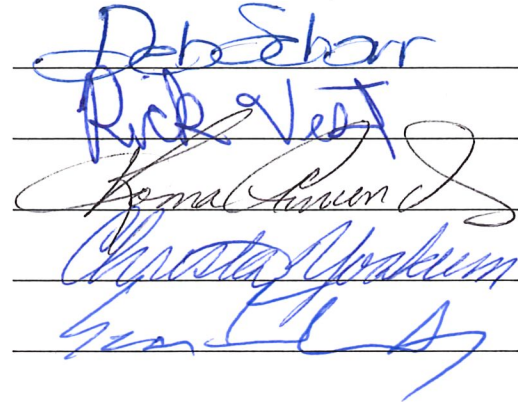 Deb Schorr
Rick Vest
Roma Amundson
Christa Yoakum
Sean